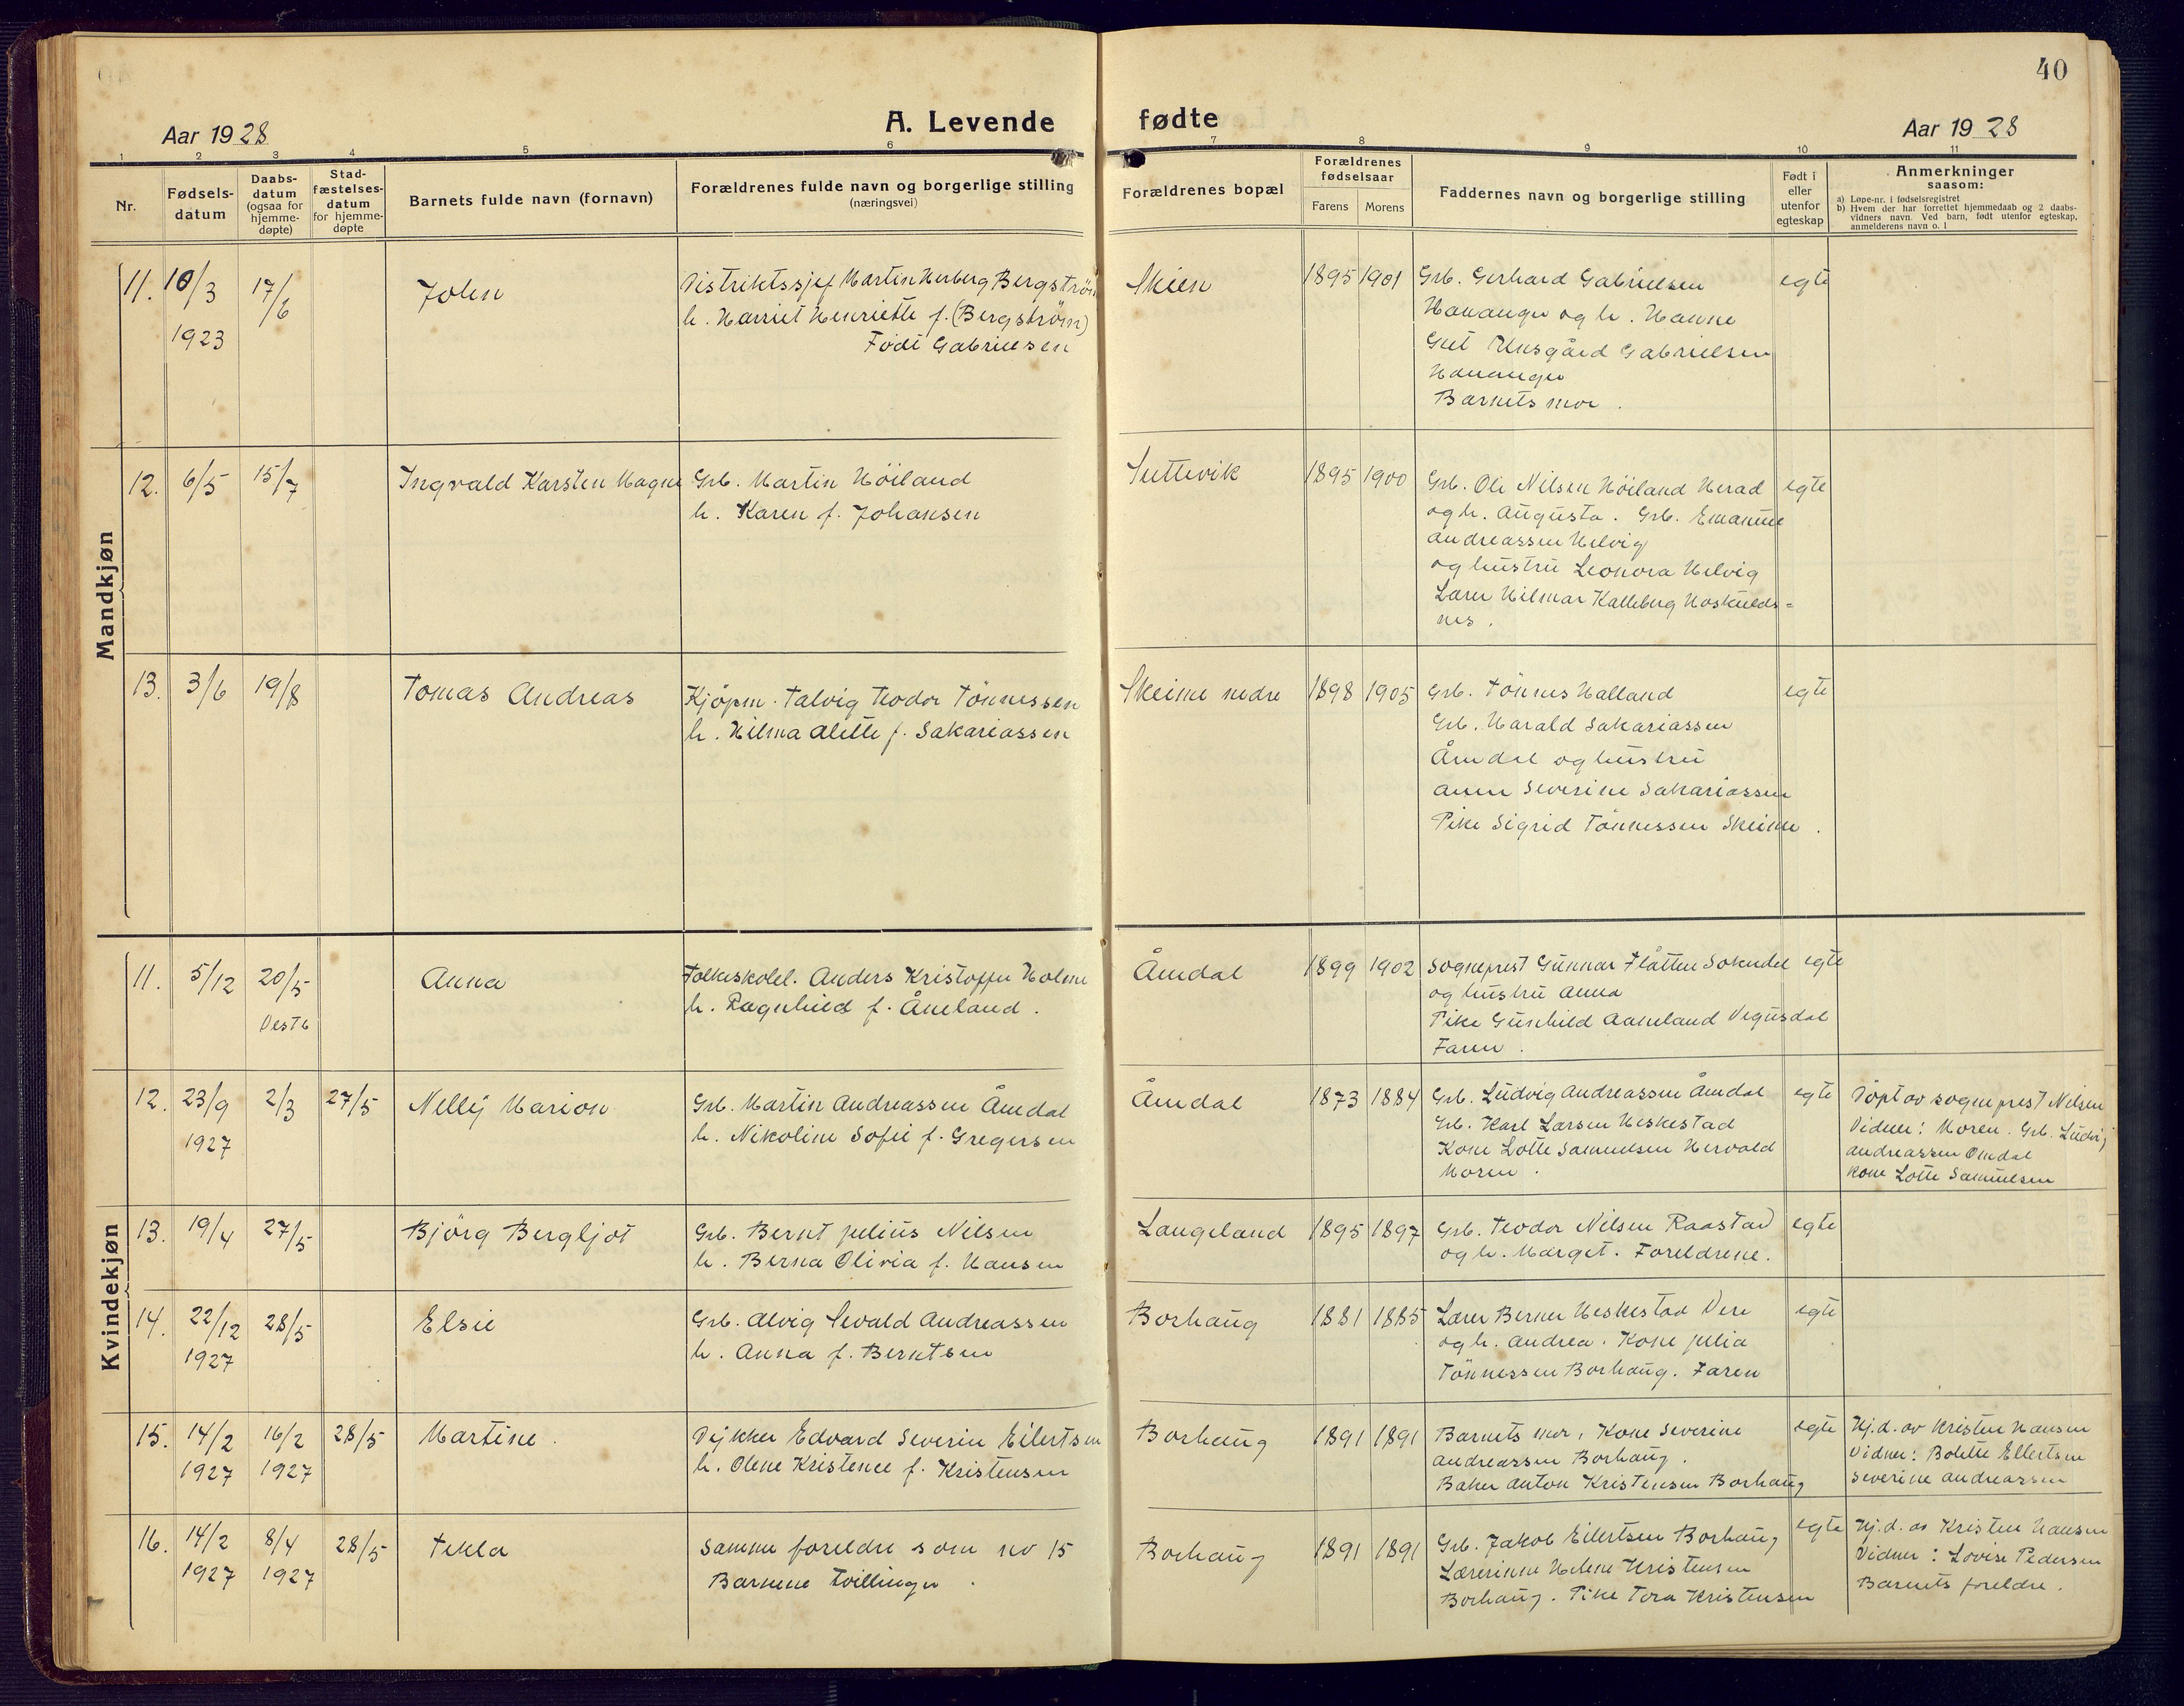 40
Aar 1928
A. Levende fødte
Aar 1928
1 2 3 4 5 6 7 8 9 10 11
Nr.
Fødsels-
datum
Daabs-
datum
(ogsaa for
hjemme-
døpte)
Stad-
fæstelses-
datum
for hjemme-
døpte
Barnets fulde navn (fornavn)
Forældrenes fulde navn og borgerlige stilling
(næringsvei)
Forældrenes bopæl
Forældrenes
fødselsaar
Farens Morens
Faddernes navn og borgerlige stilling
Født i
eller
utenfor
egteskap
Anmerkninger
saasom:
a) Løpe-nr. i fødselsregistret
b) Hvem der har forrettet hjemmedaab og 2 daabs-
vidners navn. Ved barn, født utenfor egteskap,
anmelderens navn o. l
Mandkjøn
11. 10/3 17/6 John
1923
Distriktssjef Martin Herberg Bergström
h. Harriet Henriette f. (Bergström)
Födt Gabrielsen
Skien 1895 1901
Grb. Gerhard Gabrielsen
Hananger og h. Hanne
Gabrielsen
Hananger
Barnets mor.
egte
12. 6/5 15/7 Ingvald Karsten Magne
Grb. Martin Höiland
h. Karen f. Johansen
1895 1900
Grb. Ole Nilsen Höiland Herad
og h. Augusta. Grb. Emanuel
Andreassen Helvig
og hustru Leonora Helvig
Lærer Hilmar Kalleberg Hoskulds-
nes.
egte
13. 3/6 19/8 Tomas Andreas
Kjöpm. Talvig Teodor Tönnessen
h. Hilma Alette f. Sakariassen
Skeime nedre 1898 1905
Grb. Tönnes Halland
Grb. Harald Sakariassen
Åmdal og hustru
Anna Severine Sakariassen
Pike Sigrid Tönnessen Skeime.
egte
Kvindekjøn
11. 5/12 20/5 Anna
Folkeskolel. Anders Kristoffer Holme
h. Ragnhild f. Åneland.
Åmdal 1899 1902
Sogneprest Gunnar Flåtten Sokndal
og hustru Anna
Pike Gunhild Aaneland Vegusdal
Faren.
egte
12. 23/9 2/3 27/5 Nelly Marion
1927
Grb. Martin Andreassen Åmdal
h. Nikoline Sofie f. Gregersen
Åmdal 1873 1884
Grb. Ludvig Andreassen Åmdal
Grb. Karl Larsen Heskestad
Kone Lotte Samuelsen Hervold
Moren.
egte
Döpt av sogneprest Nilsen
Vidner: Moren. Grb. Ludvig
Andreassen Omdal
Kone Lotte Samuelsen
13. 19/4 27/5 Björg Bergljot
Grb. Bernt Julius Nilsen
h. Berna Olivia f. Hansen
Langeland 1895 1897
Grb. Teodor Nilsen Raastad
og h. Marget. Foreldrene.
egte
14. 22/12 28/5 Elsie
1927
Grb. Alvig Sevald Andreassen
h. Anna f. Berntsen
Borhaug 1881 1885
Lærer Berner Heskestad Vere
og h. Andrea. Kone Julia
Tönnessen Borhaug. Faren
egte
15. 14/2 16/2 28/5 Martine.
1927 1927
Dykker Edvard Severin Eilertsen
h. Olene Kristence f. Kristensen
Borhaug 1891 1891
Barnets mor, Kone Severine
Andreassen Borhaug.
Baker Anton Kristensen Borhaug
egte
Hj.d. av Kristen Hansen
Vidner: Bolette Ellertsen
Severine Andreassen
16. 14/2 8/4 28/5 Tekla
1927 1927
Samme foreldre som nr 15
Barnene tvillinger.
Borhaug 1891 1891
Grb. Jakob Eilertsen Borhaug
Lærerinne Helene Kristensen
Borhaug. Pike Tora Kristensen
egte
Hj.d. av Kristen Hansen
Vidner: Lovise Pedersen
Barnets foreldre.